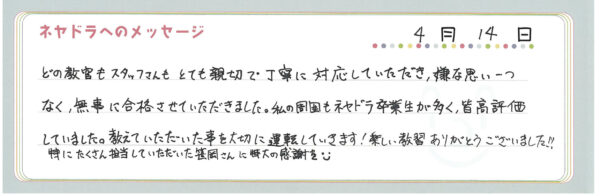 ネヤドラへのメッセージ
4月14日
どの教官もスタッフさんもとても親切で丁寧に対応していただき,嫌な思い一つ
なく,無事に合格させていただきました。私の周囲もネヤドラ卒業生が多く,皆高評価
していました。教えていただいた事を大切に運転していきます!楽しい教習ありがとうございました!!
特にたくさん担当していただいた笹岡さんに特大の感謝を